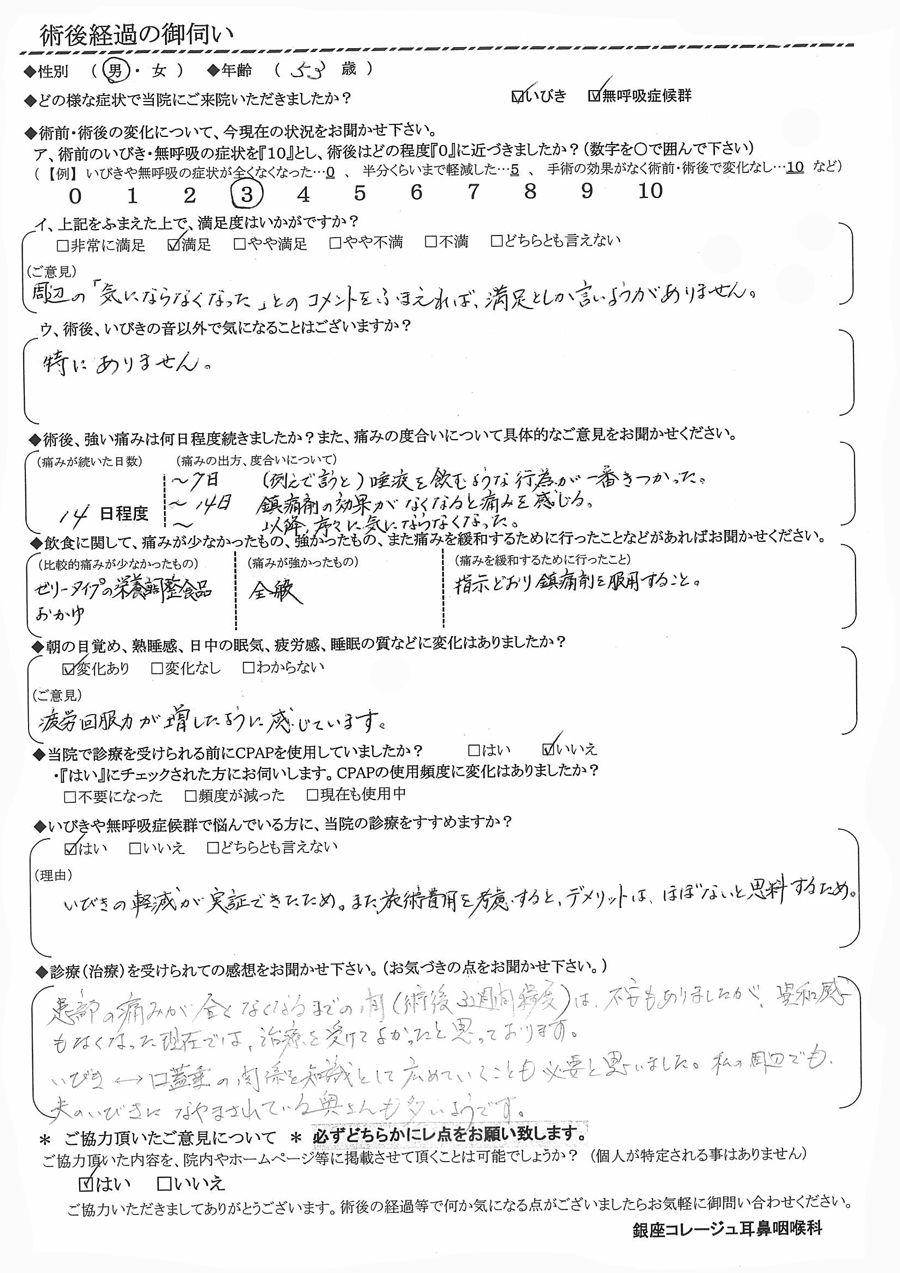 術後経過の御伺い
◆性別 （ 男 ・ 女 ） ◆年齢 （ 53 歳 ）
◆どの様な症状で当院にご来院いただきましたか？ ☑いびき ☑無呼吸症候群
◆術前・術後の変化について、今現在の状況をお聞かせ下さい。
ア、術前のいびき・無呼吸の症状を『10』とし、術後はどの程度『0』に近づきましたか？（数字を○で囲んで下さい）
（ 【例】 いびきや無呼吸の症状が全くなくなった…0 、 半分くらいまで軽減した…5 、 手術の効果がなく術前・術後で変化なし…10 など）
0 1 2 3 4 5 6 7 8 9 10
イ、上記をふまえた上で、満足度はいかがですか？
□非常に満足 ☑満足 □やや満足 □やや不満 □不満 □どちらとも言えない
（ご意見）
周辺の「気にならなくなった」とのコメントをふまえれば、満足としか言いようがありません。
ウ、術後、いびきの音以外で気になることはございますか？
特にありません。
◆術後、強い痛みは何日程度続きましたか？また、痛みの度合いについて具体的なご意見をお聞かせください。
（痛みが続いた日数） （痛みの出方、度合いについて）
～7日 （例えで言うと）唾液を飲むような行為が一番きつかった。
14 日程度 ～14日 鎮痛剤の効果がなくなると痛みを感じる。
～ 以降、序々に気にならなくなった。
◆飲食に関して、痛みが少なかったもの、強かったもの、また痛みを緩和するために行ったことなどがあればお聞かせください。
（比較的痛みが少なかったもの） （痛みが強かったもの） （痛みを緩和するために行ったこと）
ゼリータイプの栄養調整食品 全般 指示どおり鎮痛剤を服用すること。
おかゆ
◆朝の目覚め、熟睡感、日中の眠気、疲労感、睡眠の質などに変化はありましたか？
☑変化あり □変化なし □わからない
（ご意見）
疲労回服力が増したように感じています。
◆当院で診療を受けられる前にCPAPを使用していましたか？ □はい ☑いいえ
・『はい』にチェックされた方にお伺いします。CPAPの使用頻度に変化はありましたか？
□不要になった □頻度が減った □現在も使用中
◆いびきや無呼吸症候群で悩んでいる方に、当院の診療をすすめますか？
☑はい □いいえ □どちらとも言えない
（理由）
いびきの軽減が実証できたため。また、施術費用を考慮すると、デメリットは、ほぼないと思料するため。
◆診療（治療）を受けられての感想をお聞かせ下さい。（お気づきの点をお聞かせ下さい。）
患部の痛みが全となくなるまでの間（術後3週間程度）は、不安もありましたが、異和感
もなくなった現在では、治療を受けてよかったと思っております。
いびき↔口蓋垂の関係を知識として広めていくことも必要と思いました。私の周辺でも、
夫のいびきになやまされている奥さんも多いようです。
＊ ご協力頂いたご意見について ＊ 必ずどちらかにレ点をお願い致します。
ご協力頂いた内容を、院内やホームページ等に掲載させて頂くことは可能でしょうか？ （個人が特定される事はありません）
☑はい □いいえ
ご協力いただきましてありがとうございます。術後の経過等で何か気になる点がございましたらお気軽に御問い合わせください。
銀座コレージュ耳鼻咽喉科